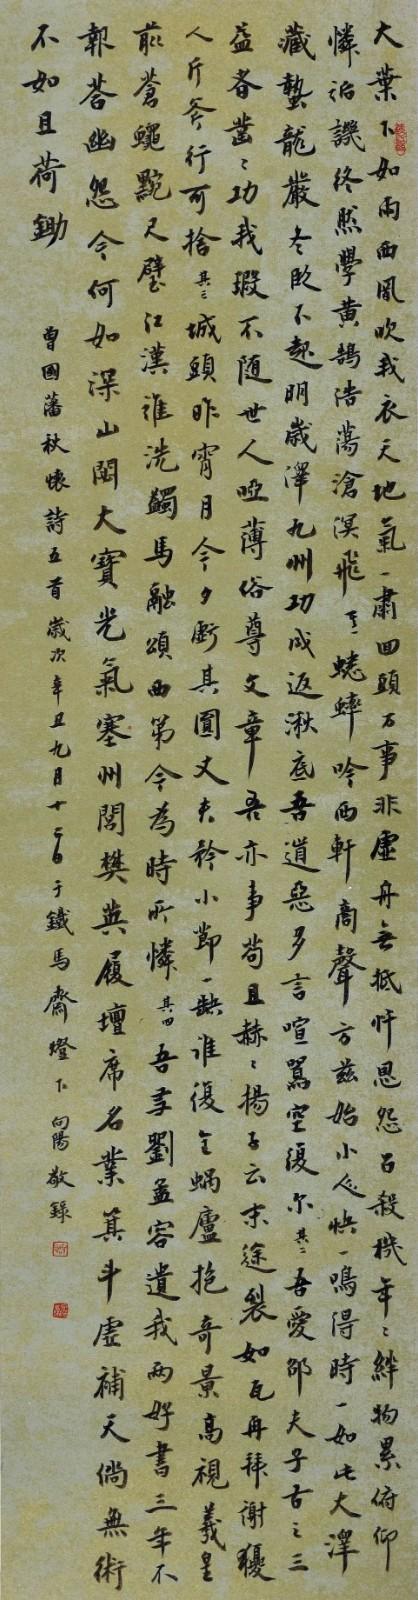 大葉下如雨西風吹我衣天地氣一肅回頭万事非虛舟無抵忤恩怨召殺機年〻絆物累俯仰
憐詬譏終然學黃鵠浩蕩滄溟飛其一蟋蟀吟西軒商聲方茲始小人快一鳴得時一如此大澤
藏蟄龍嚴冬臥不起明歲澤九州功成返湫底吾道惡多言喧鬧空復尔其二吾愛邵夫子古之三
益者鑿〻功我瑕不随世人啞薄俗尊文章吾亦事苟且赫〻揚子云末途裂如瓦再拜謝
人斤斧行可捨其三城頭昨宵月今夕虧其圓丈夫矜小節一缺誰復全蝸廬抱奇景高視羲皇
前蒼蠅點尺璧江漢誰洗蠲馬融頌西第今為時所憐其四吾友劉孟容遺我两好書三年不
報荅幽怨今何如深山閟大寶光氣塞州閭樊英履壇席名業箕斗虛補天倘無術
不如且荷鋤
曾國藩秋懷詩五首歲次辛丑九月十二日于鐵馬齋燈下向陽敬錄